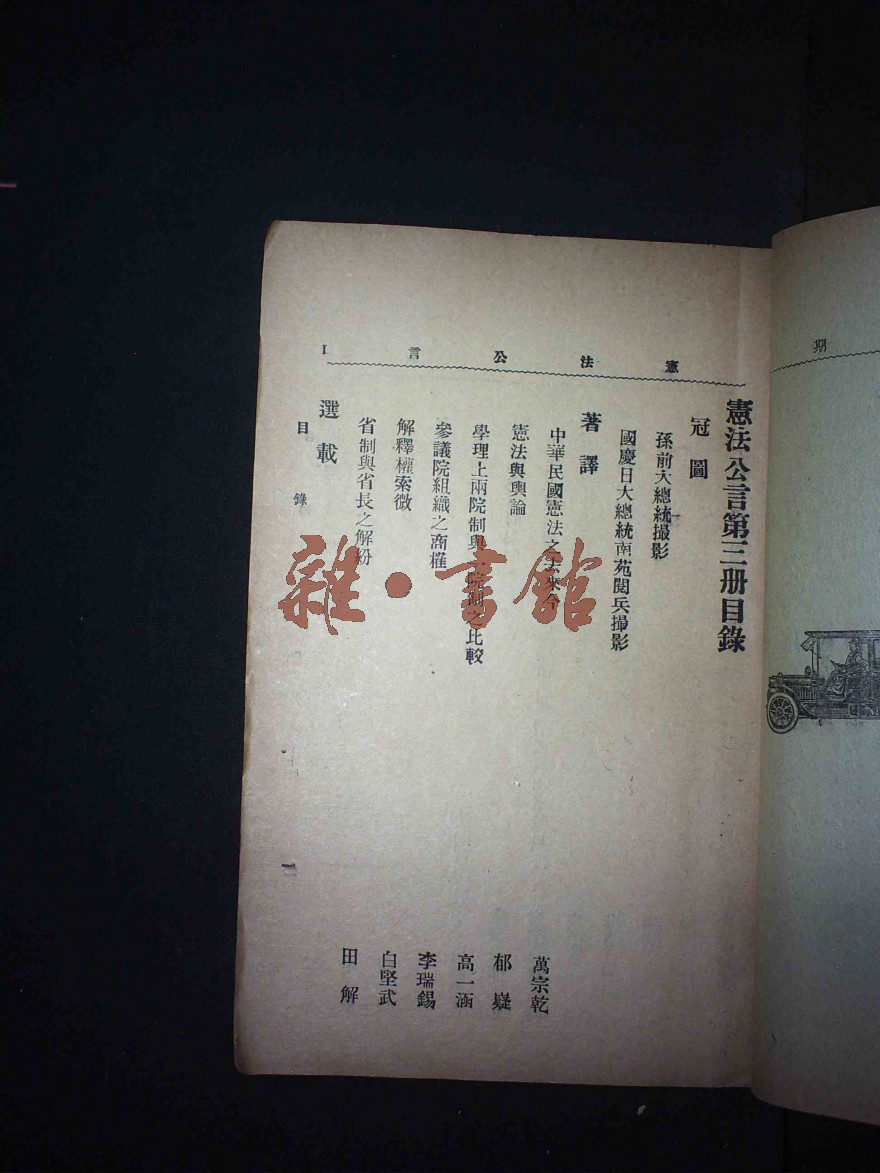 憲法公言 I
憲法公言第三册目錄
冠圖
孫前大總統撮影
國慶日大總統南苑閱兵撮影
著譯
中華民國憲法之去來今 萬宗乾
憲法與輿論 郁嶷
學理上兩院制與一院制之比較 高一涵
參議院組織之商榷 李瑞錫
解釋權索微 白堅武
省制與省長之解紛 田解
選載
目錄
一
期
雜·書館